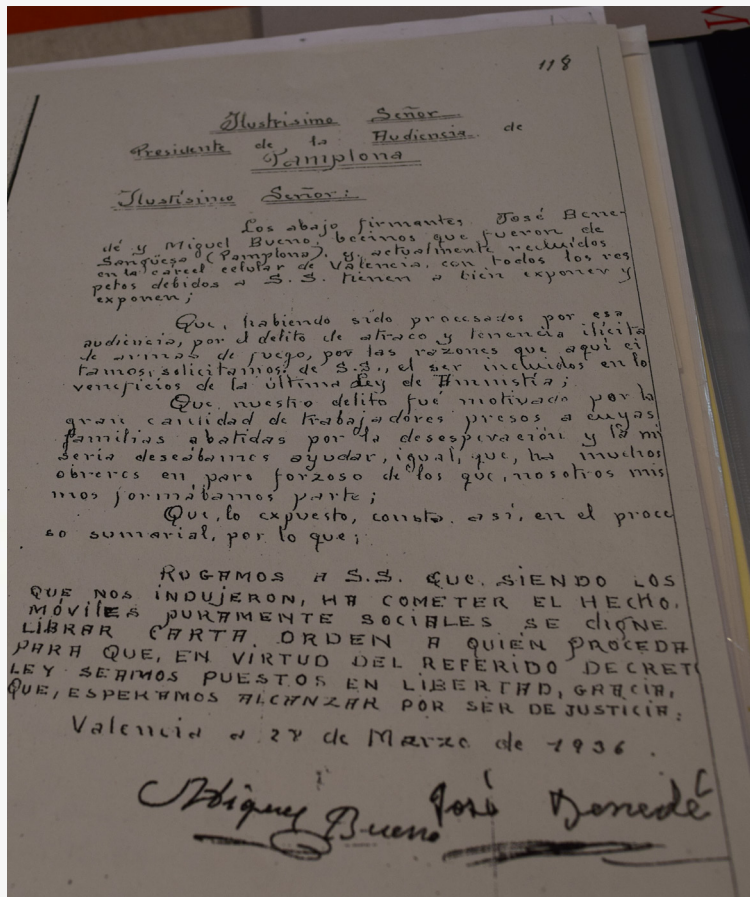 118
Ilustrisimo Señor
Presidente de la Audiencia de
Pamplona
Ilustísimo Señor:
Los abajo firmantes, José Bene-
dé y Miguel Bueno, becinos que fueron de
Sangüesa (Pamplona), y actualmente recluidos
en la carcel celular de Valencia, con todos los res
petos debidos a S.S. tienen a bien exponer y
exponen;
Que, habiendo sido procesados por esa
audiencia, por el delito de atraco y tenencia ilícita
de armas de fuego, por las razones que aquí ci
tamos, solicitamos, de S.S., el ser incluidos en lo
veneficios de la última Ley de Amnistía;
Que, nuestro delito fué motivado por la
gran cantidad de trabajadores presos a cuyas
familias abatidas por la desesperación y la mi
seria deseábamos ayudar, igual, que, ha muchos
obreros en paro forzoso de los que, nosotros mis
mos formábamos parte;
Que, lo expuesto, consta. así, en el proce
so sumarial, por lo que;
ROGAMOS A S.S. QUE. SIENDO LOS
QUE NOS INDUJERON, HA COMETER EL HECHO,
MÓVILES PURAMENTE SOCIALES SE DIGNE
LIBRAR CARTA ORDEN A QUIÉN PROCEDA
PARA QUE, EN VIRTUD DEL REFERIDO DECRET
LEY SEAMOS PUESTOS EN LIBERTAD, GRACIA,
QUE, ESPERAMOS ALCANZAR POR SER DE JUSTICIA:
Valencia a 28 de Marzo de 1936.
Miguel Bueno José Benedé